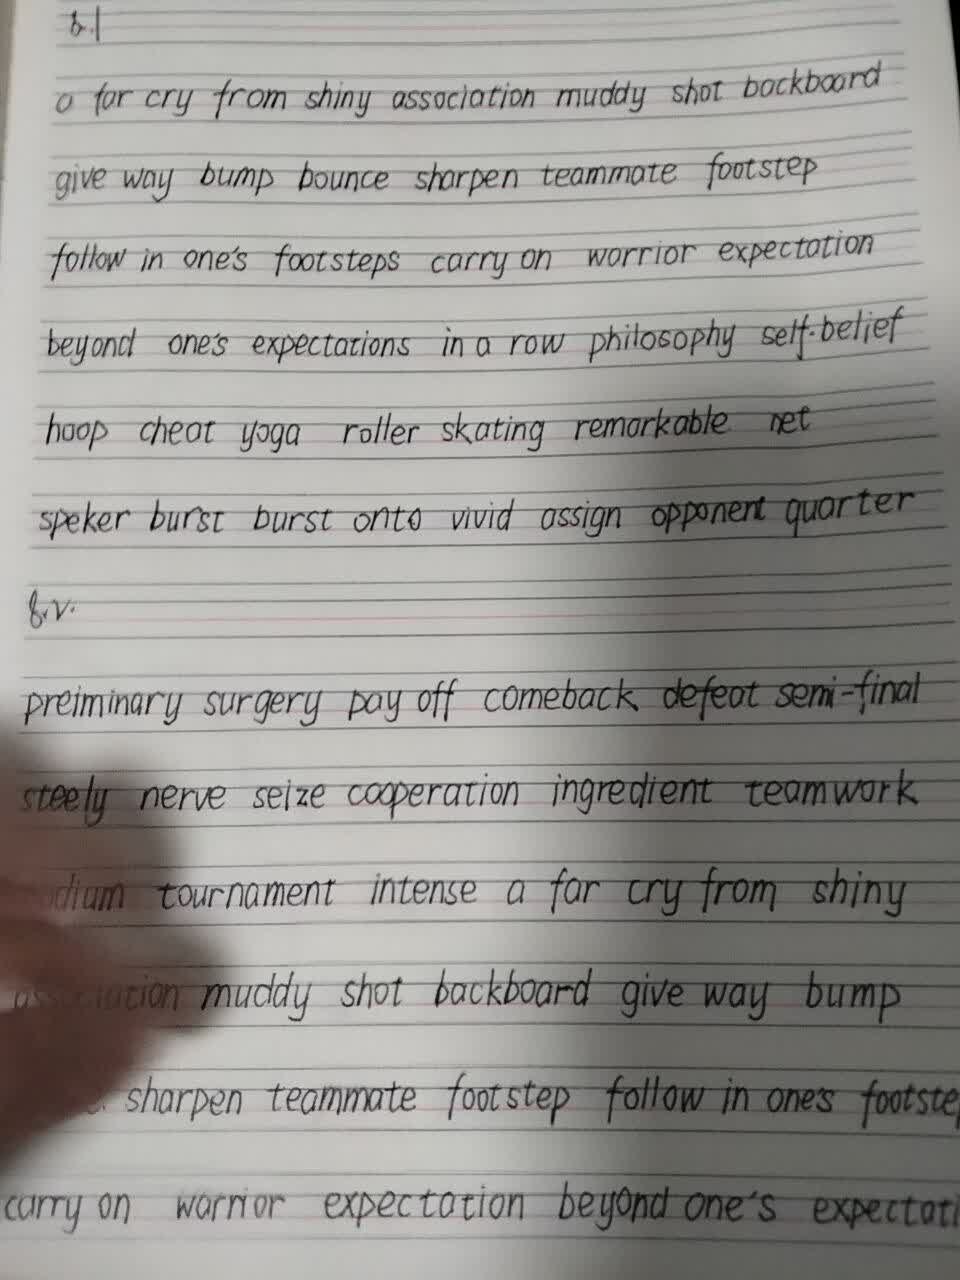 8.1
a far cry from shiny association muddy shot backboard
give way bump bounce sharpen teammate footstep
follow in one's footsteps carry on warrior expectation
beyond one's expectations in a row philosophy self-belief
hoop cheat yoga roller skating remarkable net
speker burst burst onto vivid assign opponent quarter
8.2.
preiminary surgery pay off comeback defeat semi-final
steely nerve seize cooperation ingredient teamwork
tournament intense a far cry from shiny
association muddy shot backboard give way bump
sharpen teammate footstep follow in one's footste
carry on warrior expectation beyond one's expectati